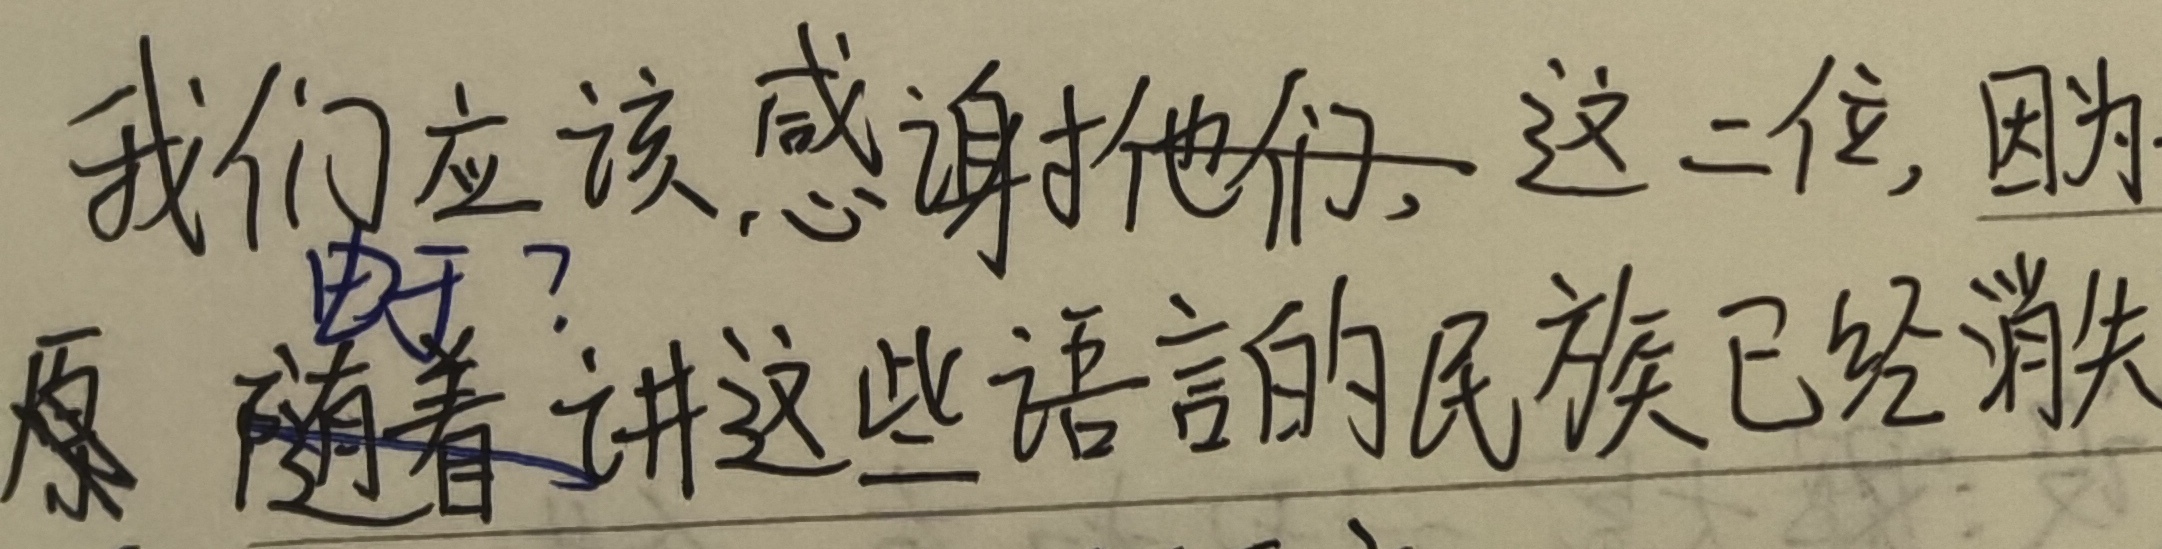 我们应该感谢他们,这二位,因为
由于?
原 随着讲这些语言的民族已经消失